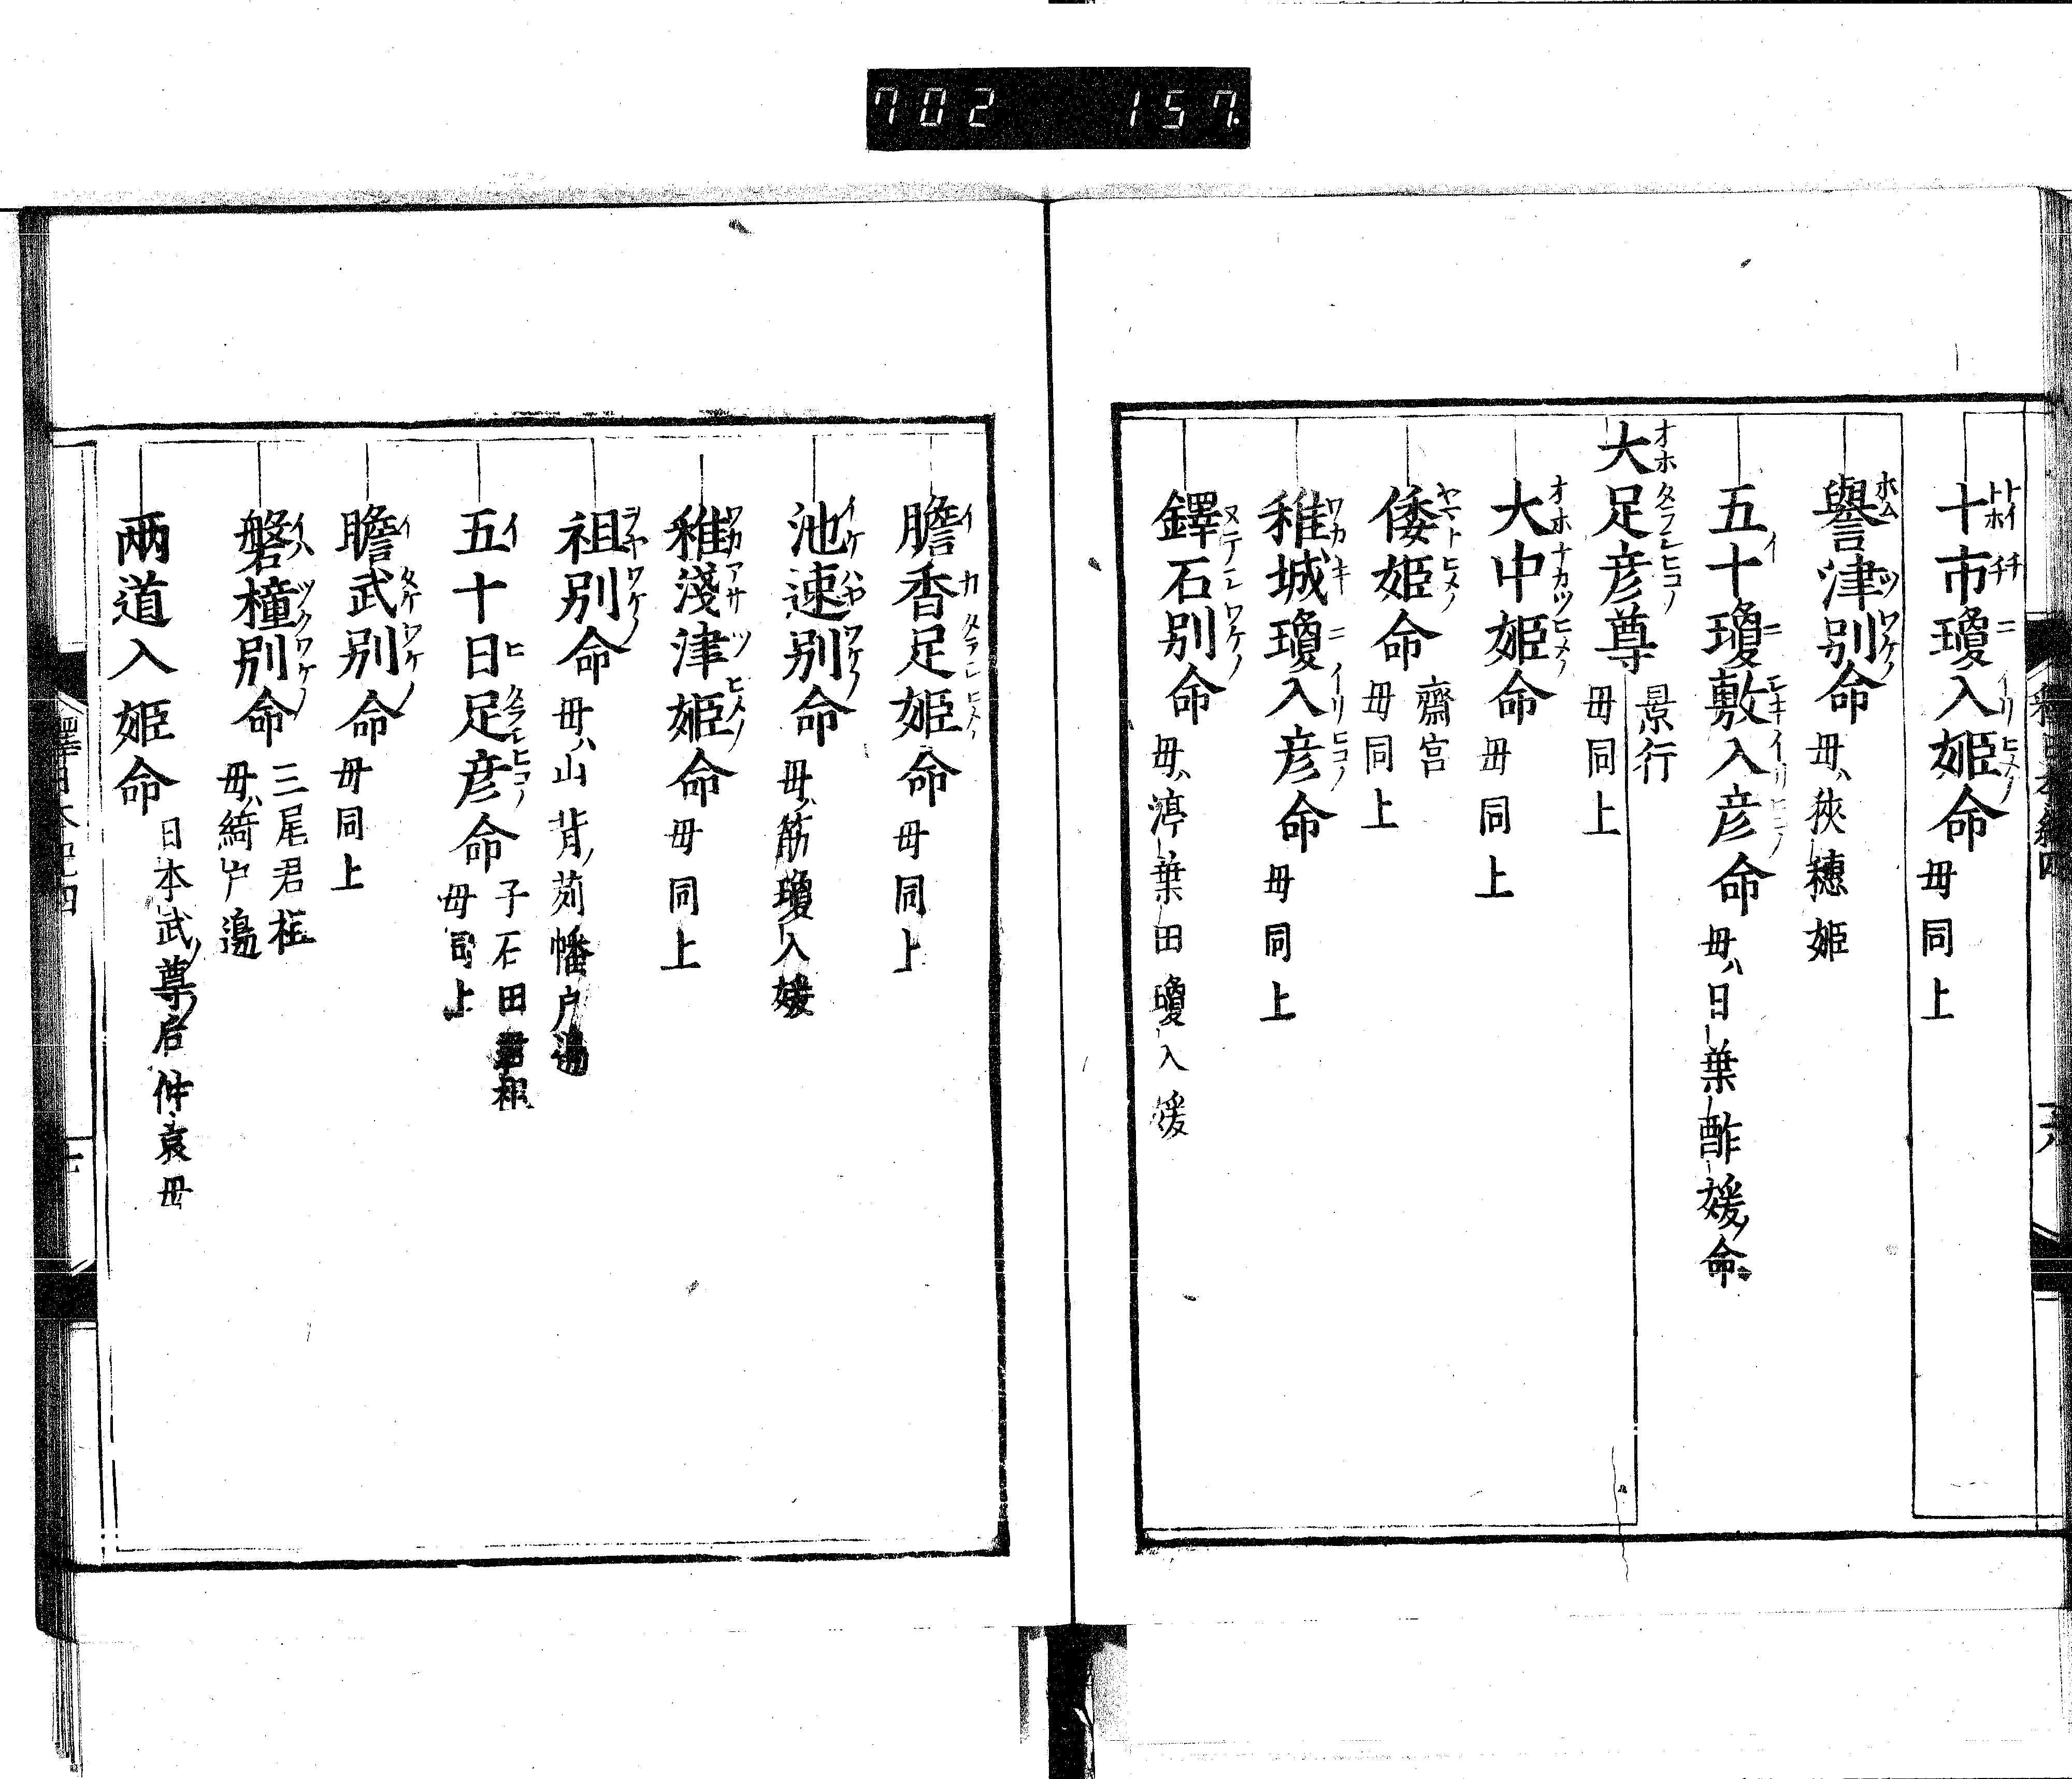 702 157
十市瓊入姫命 毋同上
譽津別命 毋ハ狹穗姫
五十瓊敷入彦命 毋ハ日葉酢媛ノ命
大足彦尊 景行 毋同上
大中姫命 毋同上
倭姫命 齋宮 毋同上
稚城瓊入彦命 毋同上
鐸石別命 毋ハ渟葉田瓊入媛
膽香足姫命 毋同上
池速別命 毋ハ筋瓊入媛
稚淺津姫命 毋同上
祖別命 毋ハ山背ノ苅幡戸邊
五十日足彦命 子石田君祖 毋同上
膽武別命 毋同上
磐橦別命 三尾君祖 毋ハ綺戸邊
兩道入姫命 日本武ノ尊ノ后仲哀毋